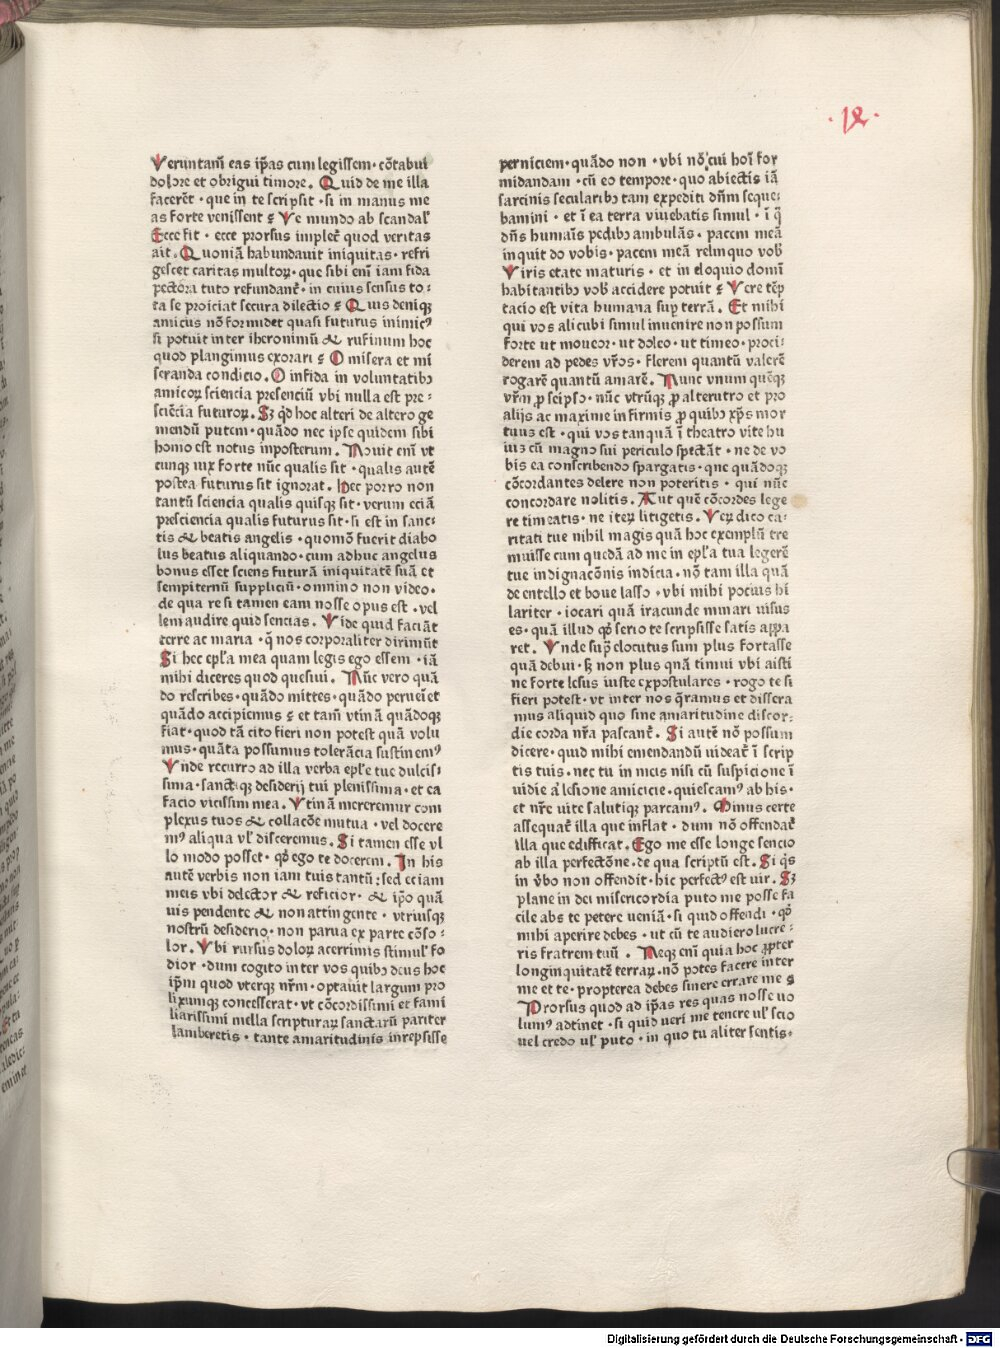 ·12·
Veruntam̄ eas ip̄as cum legissem· cōtabui
dolore et obrigui timore. Quid de me illa
facerēt · que in te scripsit · si in manus me
as forte venissent ꝛ Ve mundo ab scandal'
Ecce fit · ecce prorsus implet̄ quod veritas
ait. Quoniā habundauit iniquitas· refri
gescet caritas multoꝝ· que sibi enī iam fida
pectora tuto refundant̄· in cuius sensus to:
ta se proiciat secura dilectio ꝛ Quis deniqꝫ
amicus nō formidet quasi futurus inimicꝰ
si potuit inter iheronimū & rufinum hoc
quod plangimus exorari ꝛ O misera et mi
seranda condicio. O infida in voluntatibꝫ
amicoꝝ sciencia presenciū vbi nulla est pre:
sciēcia futuroꝝ. Sꝫ qd̄ hoc alteri de altero ge
mendū putem· quādo nec ipse quidem sibi
homo est notus inposterum. Nouit enī vt
cunqꝫ uix forte nūc qualis sit · qualis autē
postea futurus sit ignorat. Hec porro non
tantū sciencia qualis quisqꝫ sit· verum eciā
presciencia qualis futurus sit· si est in sanc:
tis & beatis angelis · quomō fuerit diabo
lus beatus aliquando· cum adhuc angelus
bonus esset sciens futurā iniquitatē suā et
sempiternū suppliciū· omnino non video·
de qua re si tamen eam nosse opus est · vel
lem audire quid sencias. Vide quid faciāt
terre ac maria · q̄ nos corporaliter dirimūt
Si hec epl'a mea quam legis ego essem · iā
mihi diceres quod quesiui. Nūc vero quā
do rescribes· quādo mittes· quādo perueīet
quādo accipiemus ꝛ et tam̄ vtinā quādoqꝫ
fiat· quod tā cito fieri non potest quā volu
mus· quāta possumus tolerācia sustinemꝰ
Vnde recurro ad illa verba epl'e tue dulcis:
sima· sanctiqꝫ desiderij tui plenissima· et ea
facio vicissim mea. Vtinā mereremur com
plexus tuos & collacōe mutua · vel docere
mꝰ aliqua vl' disceremus. Si tamen esse vl
lo modo posset· qđ ego te docerem. In his
autē verbis non iam tuis tantū: sed eciam
meis vbi delector & reficior· & ip̄o quā
uis pendente & non attingente · vtriusqꝫ
nostrū desiderio· non parua ex parte cōso:
lor. Vbi rursus doloꝝ acerrimis stimul' fo
dior · dum cogito inter vos quibꝫ deus hoc
ip̄m quod vterqꝫ nr̄m· optauit largum pro
lixumqꝫ concesserat· vt cōcordissimi et fami
liarissimi mella scripturaꝝ sanctarū pariter
lamberetis· tante amaritudinis inrepsisse
perniciem· quādo non · vbi nō cui hoī for
midandam · cū eo tempore· quo abiectis iā
sarcinis secularibꝫ tam expediti dn̄m seque:
bamini · et ī ea terra viuebatis simul · ī q̄
dn̄s humaīs pedibꝫ ambulās· pacem meā
inquit do vobis· pacem meā relinquo vob'
Viris etate maturis · et in eloquio domī
habitantibꝫ vob' accidere potuit ꝛ Vere tēp
tacio est vita humana sup̄ terrā. Et mihi
qui vos alicubi simul inuenire non possum
forte ut moueor· ut doleo· ut timeo· proci:
derem ad pedes vr̄os· flerem quantū valerē
rogarē quantū amarē. Nunc vnum quēqꝫ
vr̄m p̄ seipso· nūc vtrūqꝫ p̄ alterutro et pro
alijs ac maxime infirmis p̄ quibꝫ xp̄s mor
tuus est · qui vos tanquā ī theatro vite hu
ius cū magno sui periculo spectāt · ne de vo
bis ea conscribendo spargatis· que quādoqꝫ
cōcordantes delere non poteritis · qui nūc
concordare nolitis. Aut quē cōcordes lege
re timeatis· ne iteꝝ litigetis. Veꝝ dico ca:
ritati tue nihil magis quā hoc exemplū tre
muisse cum quedā ad me in epl'a tua legerē
tue indignacōnis indicia· nō tam illa quā
de entello et boue lasso · vbi mihi pocius hi
lariter · iocari quā iracunde minari uisus
es· quā illud qđ serio te scripsisse satis appa
ret. Vnde sup̄ elocutus sum plus fortasse
quā debui· sꝫ non plus quā timui vbi aisti
ne forte lesus iuste expostulares · rogo te si
fieri potest· vt inter nos q̄ramus et dissera
mus aliquid quo sine amaritudine discor:
die corda nr̄a pascant̄. Si autē nō possum
dicere· quid mihi emendandū uideat̄ ī scrip
tis tuis· nec tu in meis nisi cū suspicione ī
uidie a' lesione amicicie· quiescamꝰ ab his·
et nr̄e uite salutiqꝫ parcamꝰ. Minus certe
assequat̄ illa que inflat · dum nō offendat̄
illa que edificat. Ego me esse longe sencio
ab illa perfectōne· de qua scriptū est. Si q̄s
in v̄bo non offendit· hic perfectꝰ est uir. Sꝫ
plane in dei misericordia puto me posse fa
cile abs te petere ueniā· si quid offendi · qđ
mihi aperire debes· ut cū te audiero lucre:
ris fratrem tuū . Neqꝫ enī quia hoc p̱pter
longinquitatē terraꝝ· nō potes facere inter
me et te· propterea debes sinere errare me ꝛ
Prorsus quod ad ip̄as res quas nosse uo
lumꝰ adtinet · si quid ueri me tenere ul' scio
uel credo ul' puto· in quo tu aliter sentis·
Digitalisierung gefördert durch die Deutsche Forschungsgemeinschaft · DFG